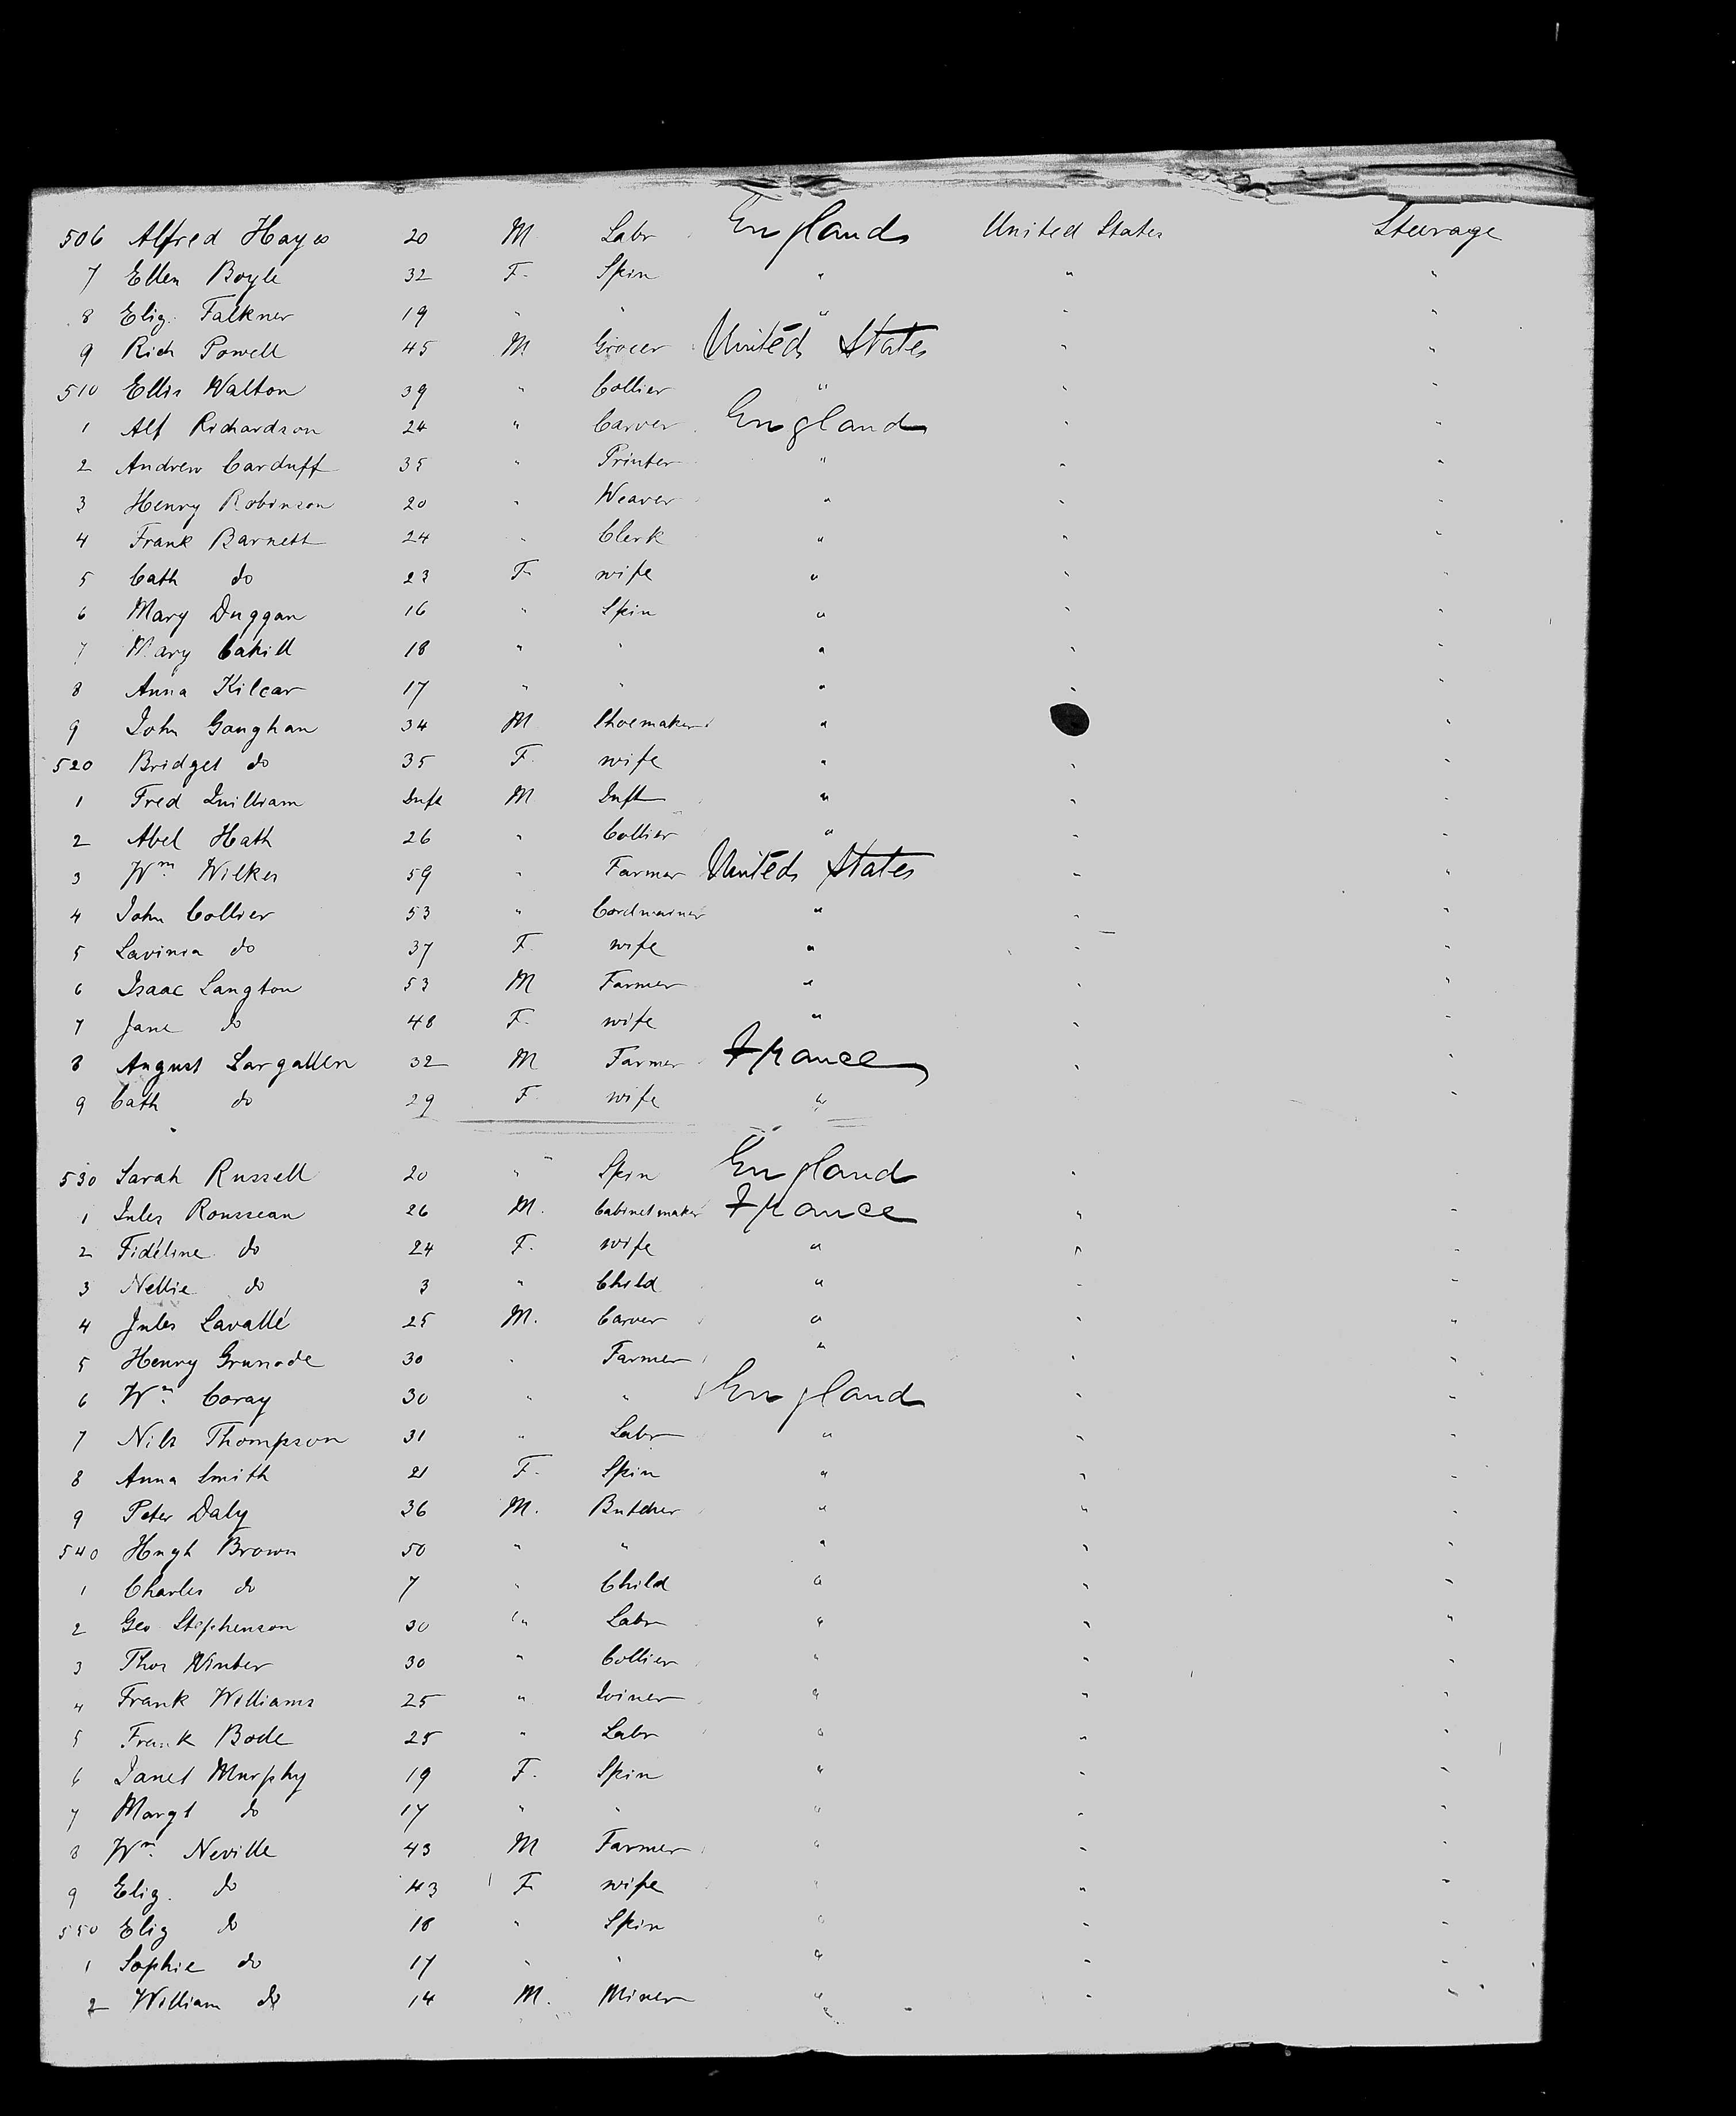 506 Alfred Hayes 20 M Labr England United States Steerage
7 Ellen Boyle 32 F. Spin " " "
8 Eliz. Falkner 19 " " " " "
9 Rich Powell 45 M Grocer United States " "
510 Ellis Walton 39 " Collier " " "
1 Alf Richardson 24 " Carver England " "
2 Andrew Carduff 35 " Printer " " "
3 Henry Robinson 20 " Weaver " " "
4 Frank Barnett 24 " Clerk " " "
5 Cath do 23 F wife " " "
6 Mary Duggan 16 " Spin " " "
7 Mary Cahill 18 " " " " "
8 Anna Kilcar 17 " " " " "
9 John Gaughan 34 M Shoemaker " "
520 Bridget do 35 F. wife " " "
1 Fred Quilliam Inft M Inft " " "
2 Abel Hath 26 " Collier " " "
3 Wm. Wilkes 59 " Farmer United States " "
4 John Collier 53 " Cordwainer " " "
5 Lavinia do 37 F. wife " " "
6 Isaac Langton 53 M Farmer " " "
7 Jane do 48 F. wife " " "
8 August Largallen 32 M Farmer France " "
9 Cath do 29 F wife " "
530 Sarah Russell 20 " Spin England "
1 Jules Rousseau 26 M. Cabinetmaker France " "
2 Fidéline do 24 F. wife " " "
3 Nellie do 3 " Child " " "
4 Jules Lavallé 25 M. Carver " " "
5 Henry Grunode 30 " Farmer " " "
6 Wm. Coray 30 " " England " "
7 Nils Thompson 31 " Labr " " "
8 Anna Smith 21 F. Spin " " "
9 Peter Daly 36 M. Butcher " " "
540 Hugh Brown 50 " " " " "
1 Charles do 7 " Child " " "
2 Geo Stephenson 30 " Labr " " "
3 Thos Winter 30 " Collier " " "
4 Frank Williams 25 " Joiner " " "
5 Frank Bode 25 " Labr " " "
6 Janet Murphy 19 F. Spin " " "
7 Margt do 17 " " " " "
8 Wm. Neville 43 M Farmer " " "
9 Eliz. do 43 F wife " " "
550 Eliz do 18 " Spin " " "
1 Sophie do 17 " " " " "
2 William do 14 M. Miner " " "